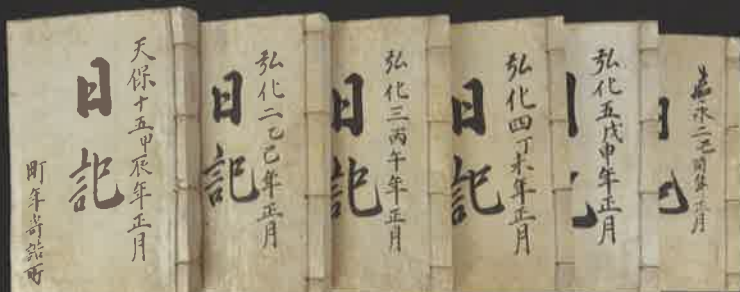 天保十五甲辰年正月
日記
町年寄詰所
弘化二乙巳年正月
日記
弘化三丙午年正月
日記
弘化四丁未年正月
日記
弘化五戊申年正月
嘉永二己酉年正月